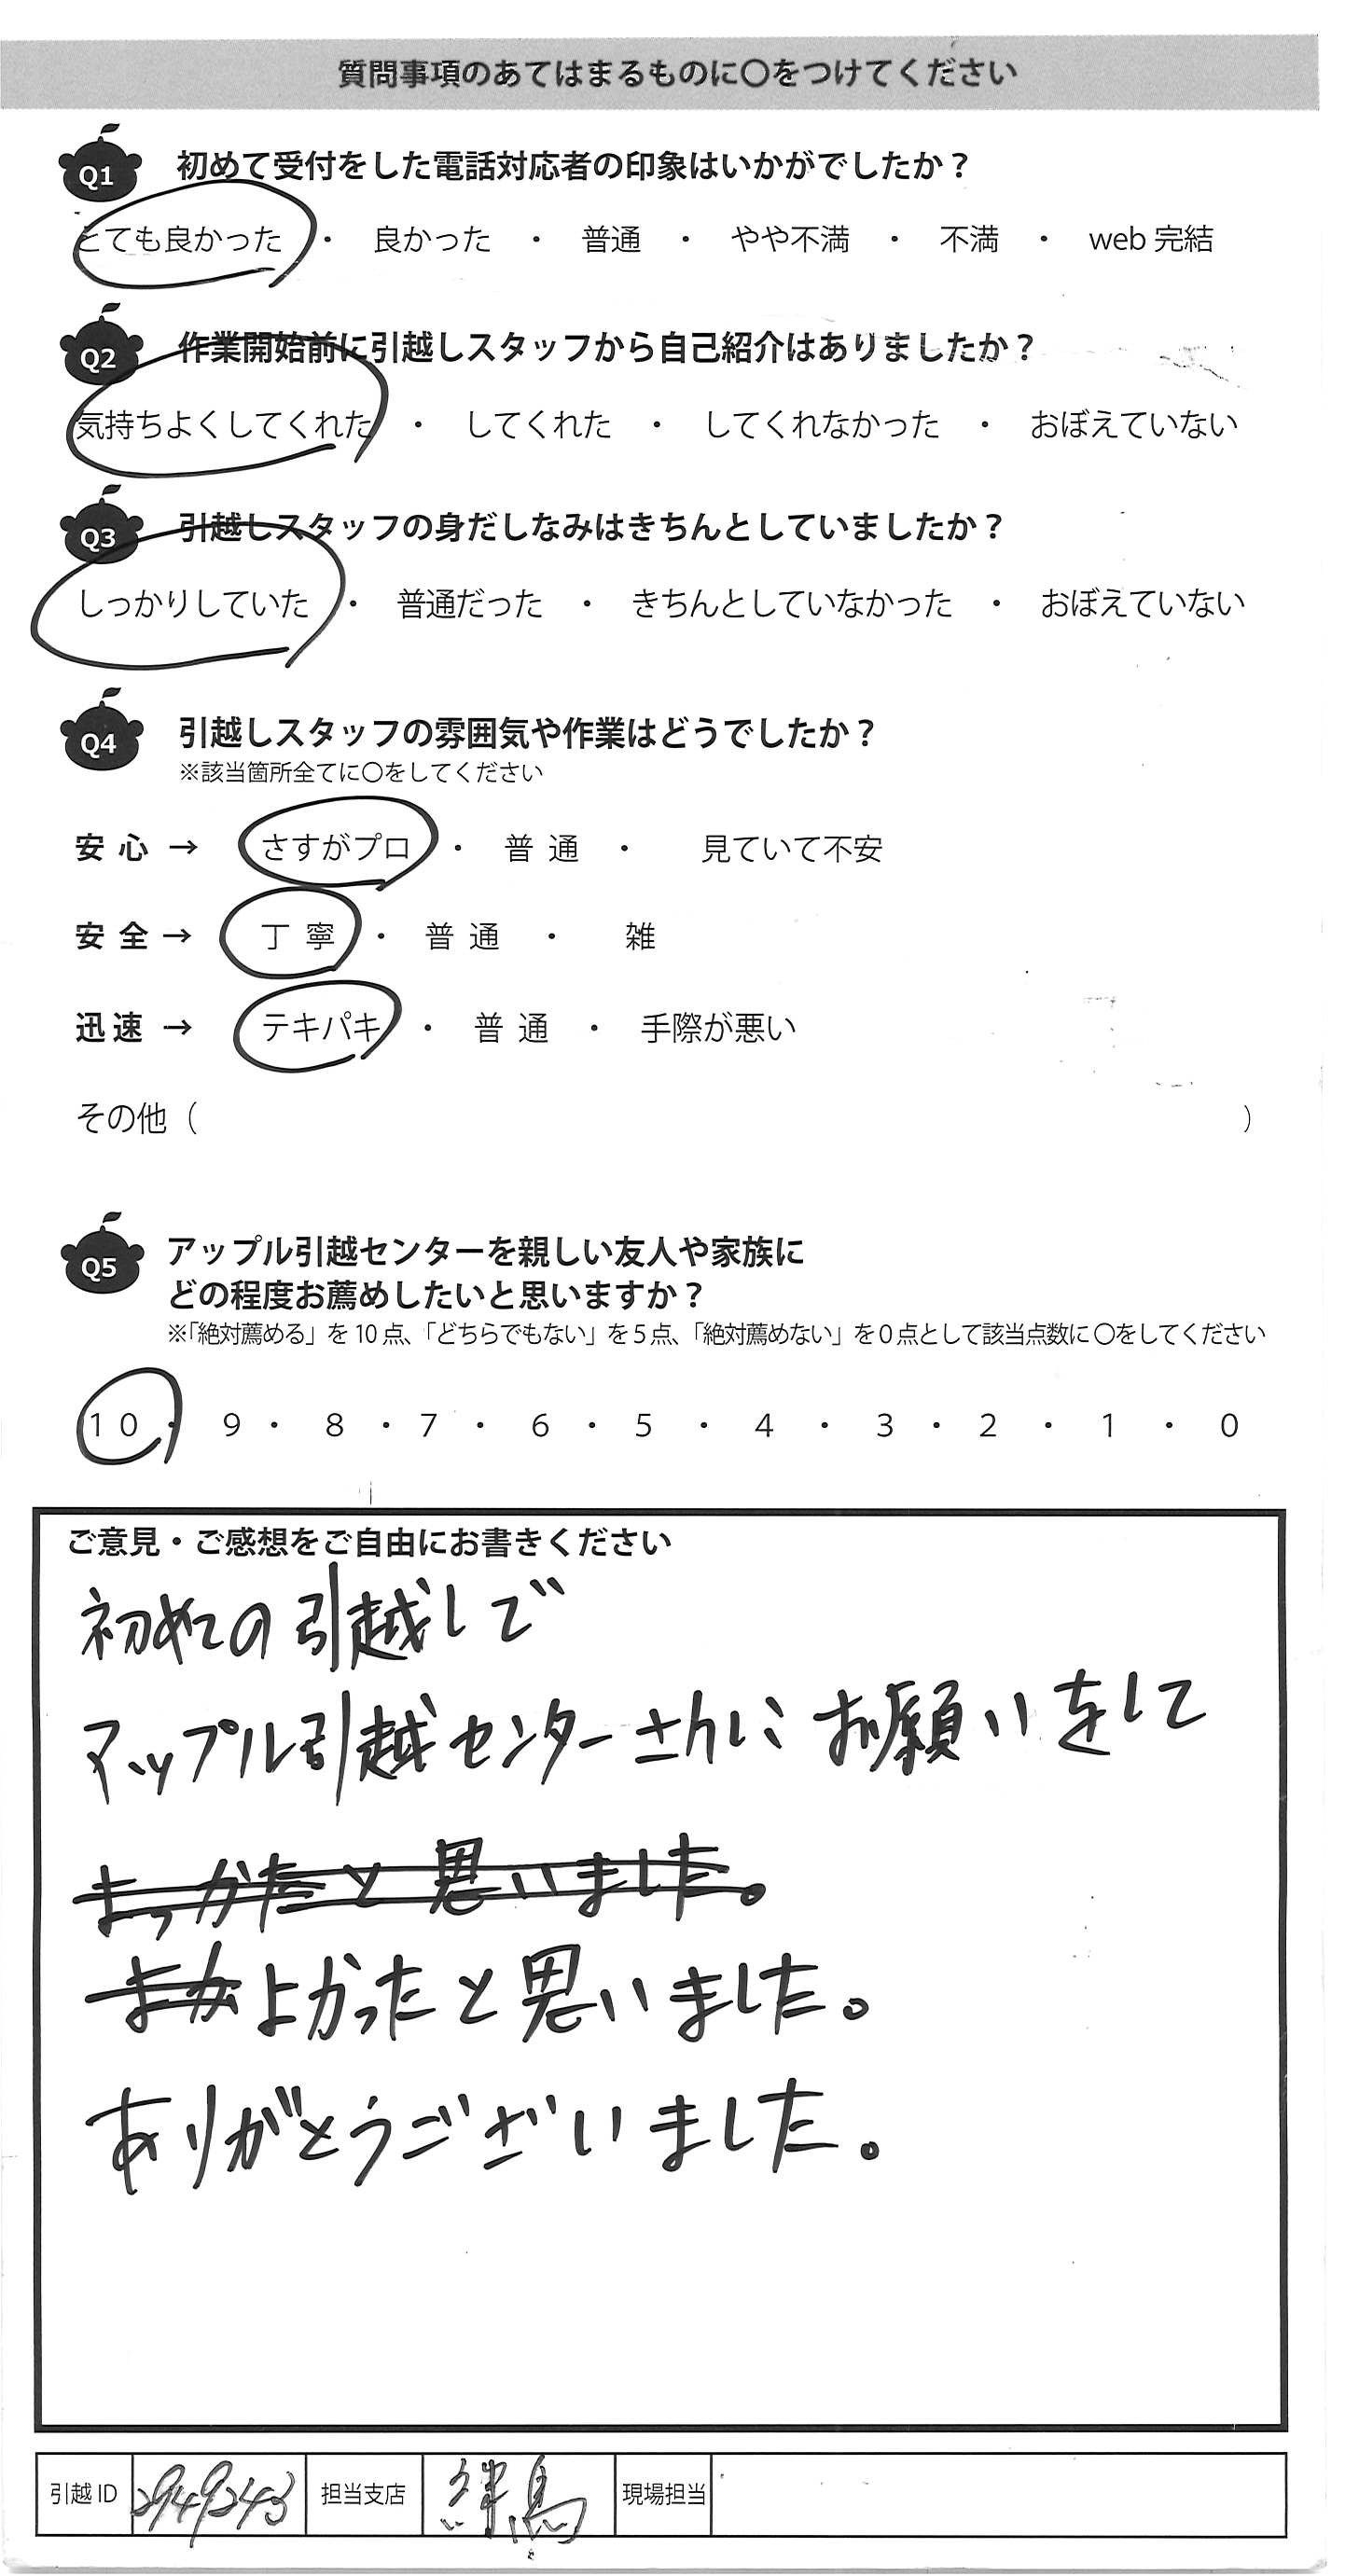 質問事項のあてはまるものに〇をつけてください
Q1 初めて受付をした電話対応者の印象はいかがでしたか？
とても良かった ・ 良かった ・ 普通 ・ やや不満 ・ 不満 ・ web 完結
Q2 作業開始前に引越しスタッフから自己紹介はありましたか？
気持ちよくしてくれた ・ してくれた ・ してくれなかった ・ おぼえていない
Q3 引越しスタッフの身だしなみはきちんとしていましたか？
しっかりしていた ・ 普通だった ・ きちんとしていなかった ・ おぼえていない
Q4 引越しスタッフの雰囲気や作業はどうでしたか？
※該当箇所全てに〇をしてください
安心 → さすがプロ ・ 普通 ・ 見ていて不安
安全 → 丁寧 ・ 普通 ・ 雑
迅速 → テキパキ ・ 普通 ・ 手際が悪い
その他（ ）
Q5 アップル引越センターを親しい友人や家族に
どの程度お薦めしたいと思いますか？
※「絶対薦める」を 10 点、「どちらでもない」を 5 点、「絶対薦めない」を 0 点として該当点数に 〇をしてください
10 ・ 9 ・ 8 ・ 7 ・ 6 ・ 5 ・ 4 ・ 3 ・ 2 ・ 1 ・ 0
ご意見・ご感想をご自由にお書きください
初めての引越しで
アップル引越センターさんに お願いをして
よっかたと思いました。
よかったと思いました。
ありがとうございました。
引越 ID 2949243 担当支店 練馬 現場担当